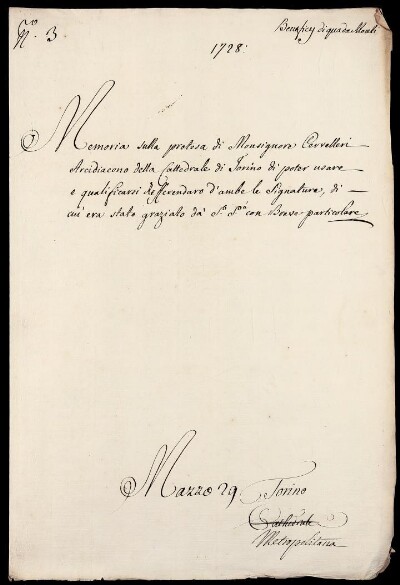 N.º 3
1728.
Memoria sulla pretesa di Monsignore Cervelleri
Arcidiacono della Cattedrale di Torino di poter usare
e qualificarsi Refferendaro d'ambe le Signature, di
cui era stato graziato da S. S.tà con Breve particolare
Mazzo 29. Torino
Cattedrale
Metropolitana